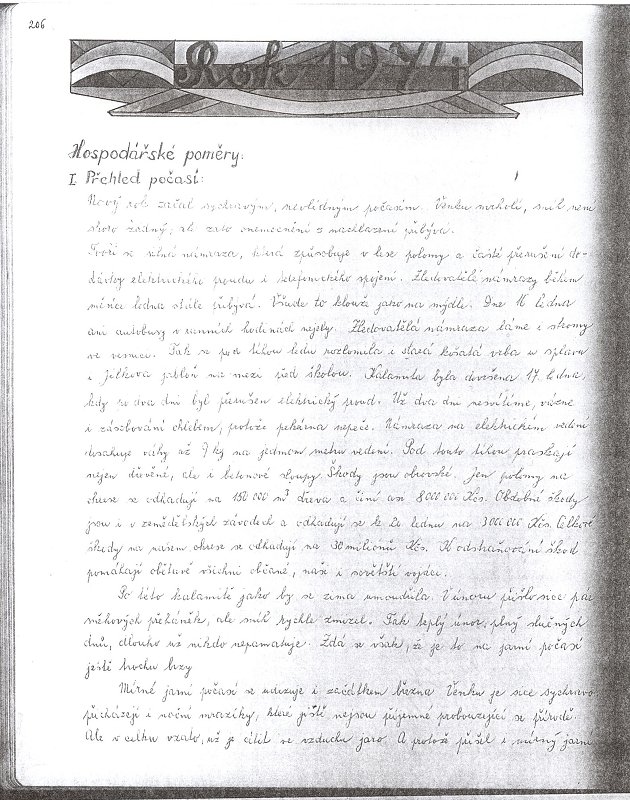 206
Rok 1974
Hospodářské poměry.
I. Přehled počasí:
Nový rok začal sychravým, nevlídným počasím. Venku mrholí, sníh není
skoro žádný, ale zato onemocnění z nachlazení přibývá.
Tvoří se silná námraza, která způsobuje v lese polomy a časté přerušení do-
dávky elektrického proudu i telefonického spojení. Zledovatělé námrazy během
měsíce ledna stále přibývá. Všude to klouže jako na mýdle. Dne 16. ledna
ani autobusy v ranních hodinách nejely. Zledovatělá námraza láme i stromy
ve vesnici. Tak se pod tíhou ledu rozlomila i stará košatá vrba u splavu
i Jílkova jabloň na mezi před školou. Kalamita byla dovršena 17. ledna,
kdy na dva dni byl přerušen elektrický proud. Už dva dni nesvítíme, vázne
i zásobování chlebem, protože pekárna nepeče. Námraza na elektrickém vedení
dosahuje váhy až 7 kg na jednom metru vedení. Pod touto tíhou praskají
nejen dřevěné, ale i betonové sloupy. Škody jsou obrovské. Jen polomy na
okrese se odhadují na 150 000 m³ dřeva a činí asi 8 000 000 Kčs. Obdobné škody
jsou i v zemědělských závodech a odhadují se k 20. lednu na 3 000 000 Kčs. Celkové
škody na našem okrese se odhadují na 30 milionů Kčs. K odstraňování škod
pomáhají obětavě všichni občané, naši i sovětští vojáci.
Po této kalamitě jako by se zima umoudřila. V únoru přišlo sice pár
sněhových přeháněk, ale sníh rychle zmizel. Tak teplý únor, plný slunečných
dnů, dlouho už nikdo nepamatuje. Zdá se však, že je to na jarní počasí
ještě trochu brzy
Mírné jarní počasí se udržuje i začátkem března. Venku je sice sychravo
přicházejí i noční mrazíky, které jistě nejsou příjemné probouzející se přírodě.
Ale v celku vzato, už je cítit ve vzduchu jaro. A protože přišel i mírný jarní